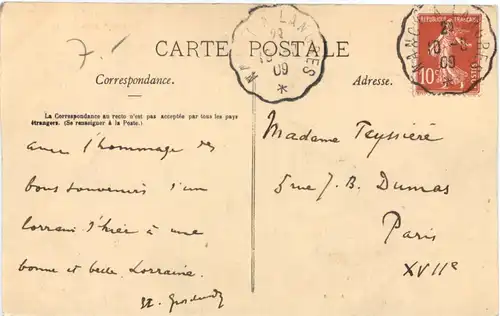 7.1
CARTE POSTALE
Correspondance.
Adresse.
La Correspondance au recto n'est pas acceptée par tous les pays
étrangers. (Se renseigner à la Poste.)
avec l'hommage des
bons souvenirs d'un
lorrain d'hier à une
bonne et belle Lorraine.
Madame Teyssière
5 rue J. B. Dumas
Paris
XVIIe
LANGRES
09
RÉPUBLIQUE FRANÇAISE
10c
POSTES
09